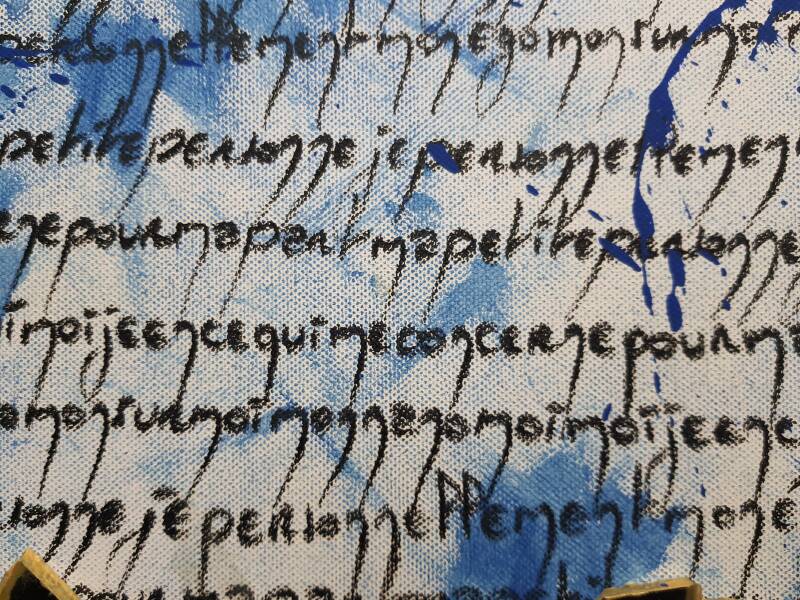 personnellementmonegomonsurmoï
petitepersonnejepersonnellemen
nepourmapartmapetitepersonne
ïmoïjeencequimeconcernepourma
omonsurmoïmonnanomoïmoïjeenc
sonnejepersonnellementmone